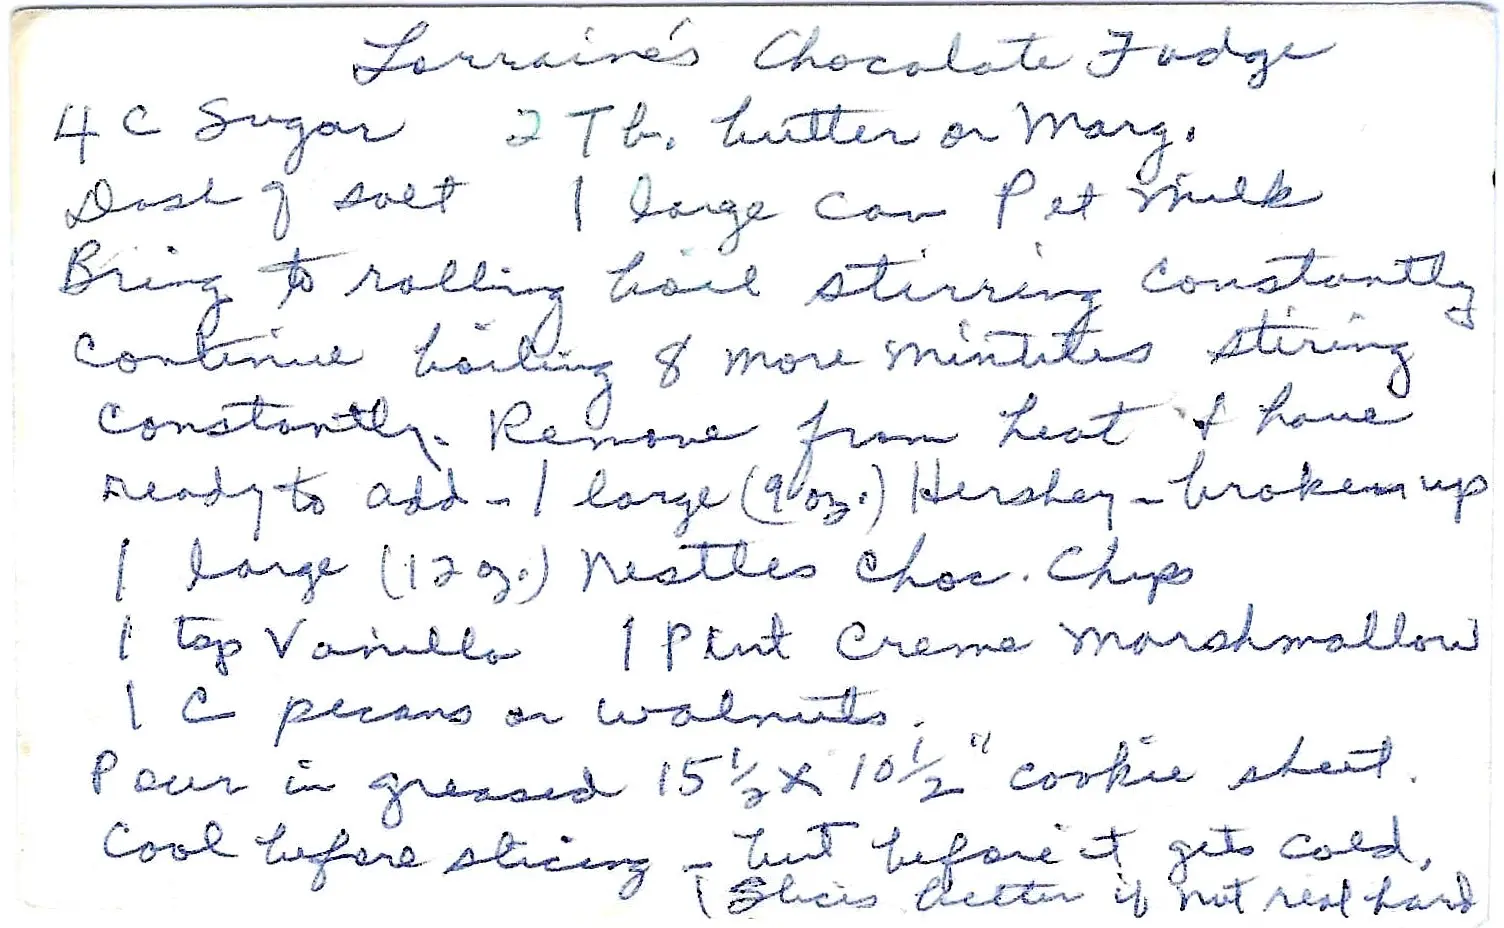 Lorraine's Chocolate Fudge
4 C Sugar 2 Tb. butter or Marg.
Dash of salt 1 large can Pet Milk
Bring to rolling boil stirring constantly
Continue boiling 8 more mintites stiring
constantly. Remove from heat & have
ready to add - 1 large (9 oz.) Hershey - broken up
1 large (12 oz.) Nestles Choc. Chips
1 tsp Vanilla 1 Pint Creme Marshmallow
1 C pecans or walnuts.
Pour in greased 15 1/2 x 10 1/2" cookie sheet.
Cool before slicing - but before it gets cold.
(Slices better if not real hard